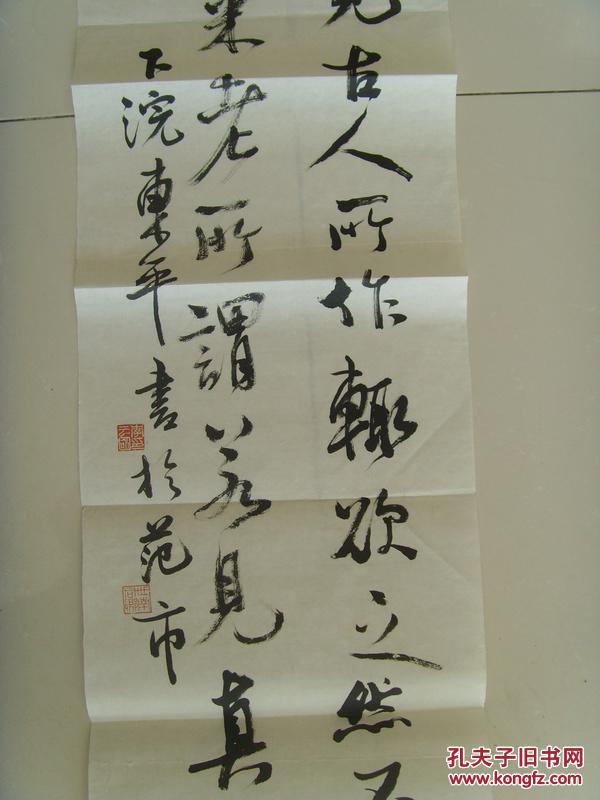 古人所作輒欲之然
老所謂若見真
下浣東平書於范市
孔夫子旧书网
www.kongfz.com